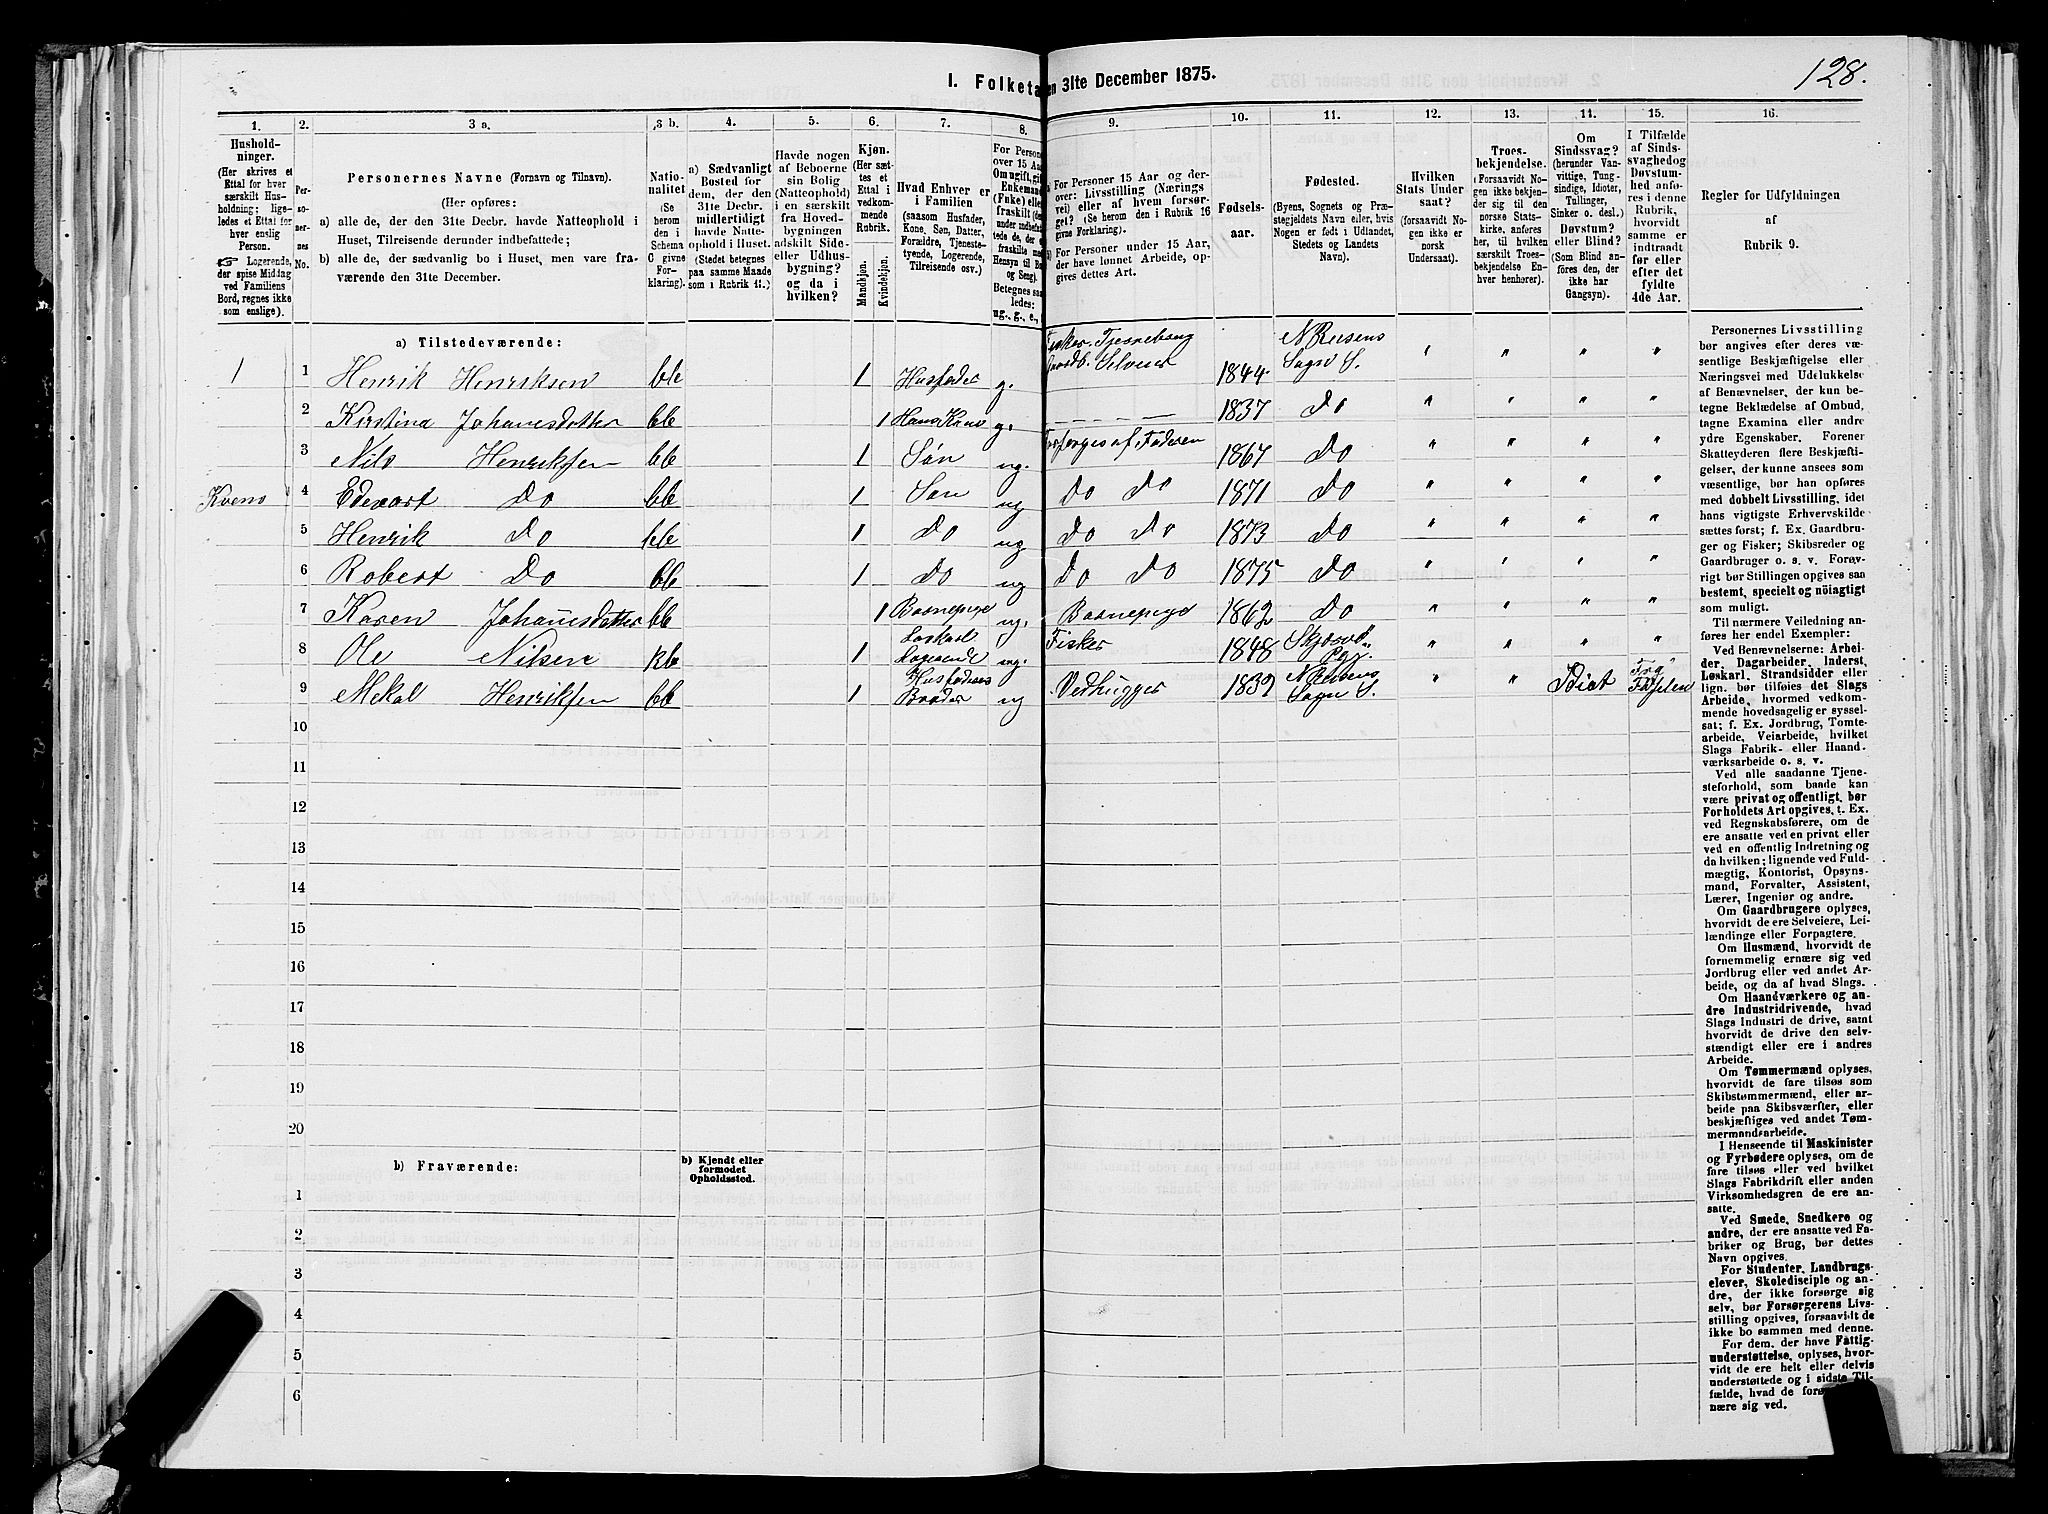 128.
I. Folketa
en 31te December 1875.
1.
2.
3 a.
3 b.
4.
5.
6.
7.
8.
9.
10.
11.
12.
13.
14.
15.
16.
Husholdninger.
(Her skrives et Ettal for hver særskilt Husholdning; ligeledes et Ettal for hver enslig Person.
☞ Logerende, der spise Middag ved Familiens Bord, regnes ikke som enslige).
Personernes No.
Personernes Navne (Fornavn og Tilnavn).
(Her opføres:
a) alle de, der den 31te Decbr. havde Natteophold i Huset, Tilreisende derunder indbefattede;
b) alle de, der sædvanlig bo i Huset, men vare fraværende den 31te December.
Nationalitet (Se herom den i Schema C givne Forklaring).
a) Sædvanligt Bosted for dem, der den 31te Decbr. midlertidigt havde Natteophold i Huset. (Stedet betegnes paa samme Maade som i Rubrik 11.)
Havde nogen af Beboerne sin Bolig (Natteophold) i en særskilt fra Hovedbygningen adskilt Side- eller Udhusbygning? og da i hvilken?
Kjøn.
(Her sættes et Ettal i vedkommende Rubrik.
Mandkjøn.
Kvindekjøn.
Hvad Enhver er i Familien
(saasom Husfader, Kone, Søn, Datter, Forældre, Tjenestetyende, Logerende, Tilreisende osv.)
Fødselsaar.
Fødested.
(Byens, Sognets og Præstegjeldets Navn eller, hvis Nogen er født i Udlandet, Stedets og Landets Navn).
Hvilken Stats Undersaat?
(forsaavidt Nogen ikke er norsk Undersaat).
Troesbekjendelse.
(Forsaavidt Nogen ikke bekjender sig til den norske Statskirke, anføres her, til hvilken særskilt Troesbekjendelse Enhver henhører).
Om Sindssvag? (herunder Vanvittige, Tungsindige, Idioter, Tullinger, Sinker o. desl.) Døvstum? eller Blind? (Som Blind anføres den, der ikke har Gangsyn).
I Tilfælde af Sindssvaghed og Døvstumhed anføres i denne Rubrik, hvorvidt samme er indtraadt før eller efter det fyldte 4de Aar.
Regler for Udfyldningen
af
Rubrik 9.
a) Tilstedeværende:
1 1 Henrik Henriksen 1 Husfader g. Gaardb. Selveier 1844. Sogn
2 Kirstina Johanesdatter 1 Hans Kone g. 1837 Do
3 Nils Henriksen 1 Søn ug. Forsørges af Faderen 1867 Do
4 Edevart Do 1 Søn ug Do Do 1871 Do
5 Henrik Do 1 Do ug Do Do 1873 Do
6 Robert Do 1 Do ug Do Do 1875 Do
7 Karen Johanesdatter 1 Barnepige ug. Barnepige 1862 Do
8 Ole Nilsen 1 Loskarl Logerende ug. Fisker 1848 Skjærvø
9 Mekal Henriksen 1 Husfaderes Broder ug Vedhugger 1832 Sogn
10
11
12
13
14
15
16
17
18
19
20
b) Fraværende:
b) Kjendt eller formodet Opholdssted.
1
2
3
4
5
6
Personernes Livsstilling
bør angives efter deres væ-
sentlige Beskjæftigelse eller
Næringsvei med Udelukkelse
af Benævnelser, der kun be-
tegne Beklædelse af Ombud,
tagne Examina eller andre
ydre Egenskaber. Forener
Skatteyderen flere Beskjæfti-
gelser, der kunne ansees som
væsentlige, bør han opføres
med dobbelt Livsstilling, idet
hans vigtigste Erhvervskilde
sættes først; f. Ex. Gaardbru-
ger og Fisker; Skibsreder og
Gaardbruger o. s. v. Forøv-
rigt bør Stillingen opgives saa
bestemt, specielt og nøiagtigt
som muligt.
Til nærmere Veiledning an-
føres her endel Exempler:
Ved Benævnelserne: Arbei-
der, Dagarbeider, Inderst,
Løskarl, Strandsidder eller
lign. bør tilføies det Slags
Arbeide, hvormed vedkom-
mende hovedsagelig er syssel-
sat; f. Ex. Jordbrug, Tomte-
arbeide, Veiarbeide, hvilket
Slags Fabrik- eller Haand-
værksarbeide o. s. v.
Ved alle saadanne Tjene-
steforhold, som baade kan
være privat og offentligt, bør
Forholdets Art opgives, t. Ex.
ved Regnskabsførere, om de
ere ansatte ved en privat eller
ved en offentlig Indretning og
da hvilken; lignende ved Fuld-
mægtig, Kontorist, Opsyns-
mand, Forvalter, Assistent,
Lærer, Ingeniør og andre.
Om Gaardbrugere oplyses,
hvorvidt de ere Selveiere, Lei-
lændinge eller Forpagtere.
Om Husmænd, hvorvidt de
fornemmelig ernære sig ved
Jordbrug eller ved andet Ar-
beide, og da af hvad Slags.
Om Haandværkere og an-
dre Industridrivende, hvad
Slags Industri de drive, samt
hvorvidt de drive den selv-
stændigt eller ere i andres
Arbeide.
Om Tømmermænd oplyses,
hvorvidt de fare tilsøs som
Skibstømmermænd, eller ar-
beide paa Skibsværfter, eller
beskjæftiges ved andet Tøm-
mermandsarbeide.
I Henseende til Maskinister
og Fyrbødere oplyses, om de
fare tilsøs eller ved hvilket
Slags Fabrikdrift eller anden
Virksomhedsgren de ere an-
satte.
Ved Smede, Snedkere og
andre, der ere ansatte ved Fa-
briker og Brug, bør dettes
Navn opgives.
For Studenter, Landbrugs-
elever, Skoledisciple og an-
dre, der ikke forsørge sig
selv, bør Forsørgerens Livs-
stilling opgives, forsaavidt de
ikke bo sammen med denne.
For dem, der have Fattig-
understøttelse, oplyses, hvor-
vidt de ere helt eller delvis
understøttede og i sidste Til-
fælde, hvad de forø
nære sig ved.